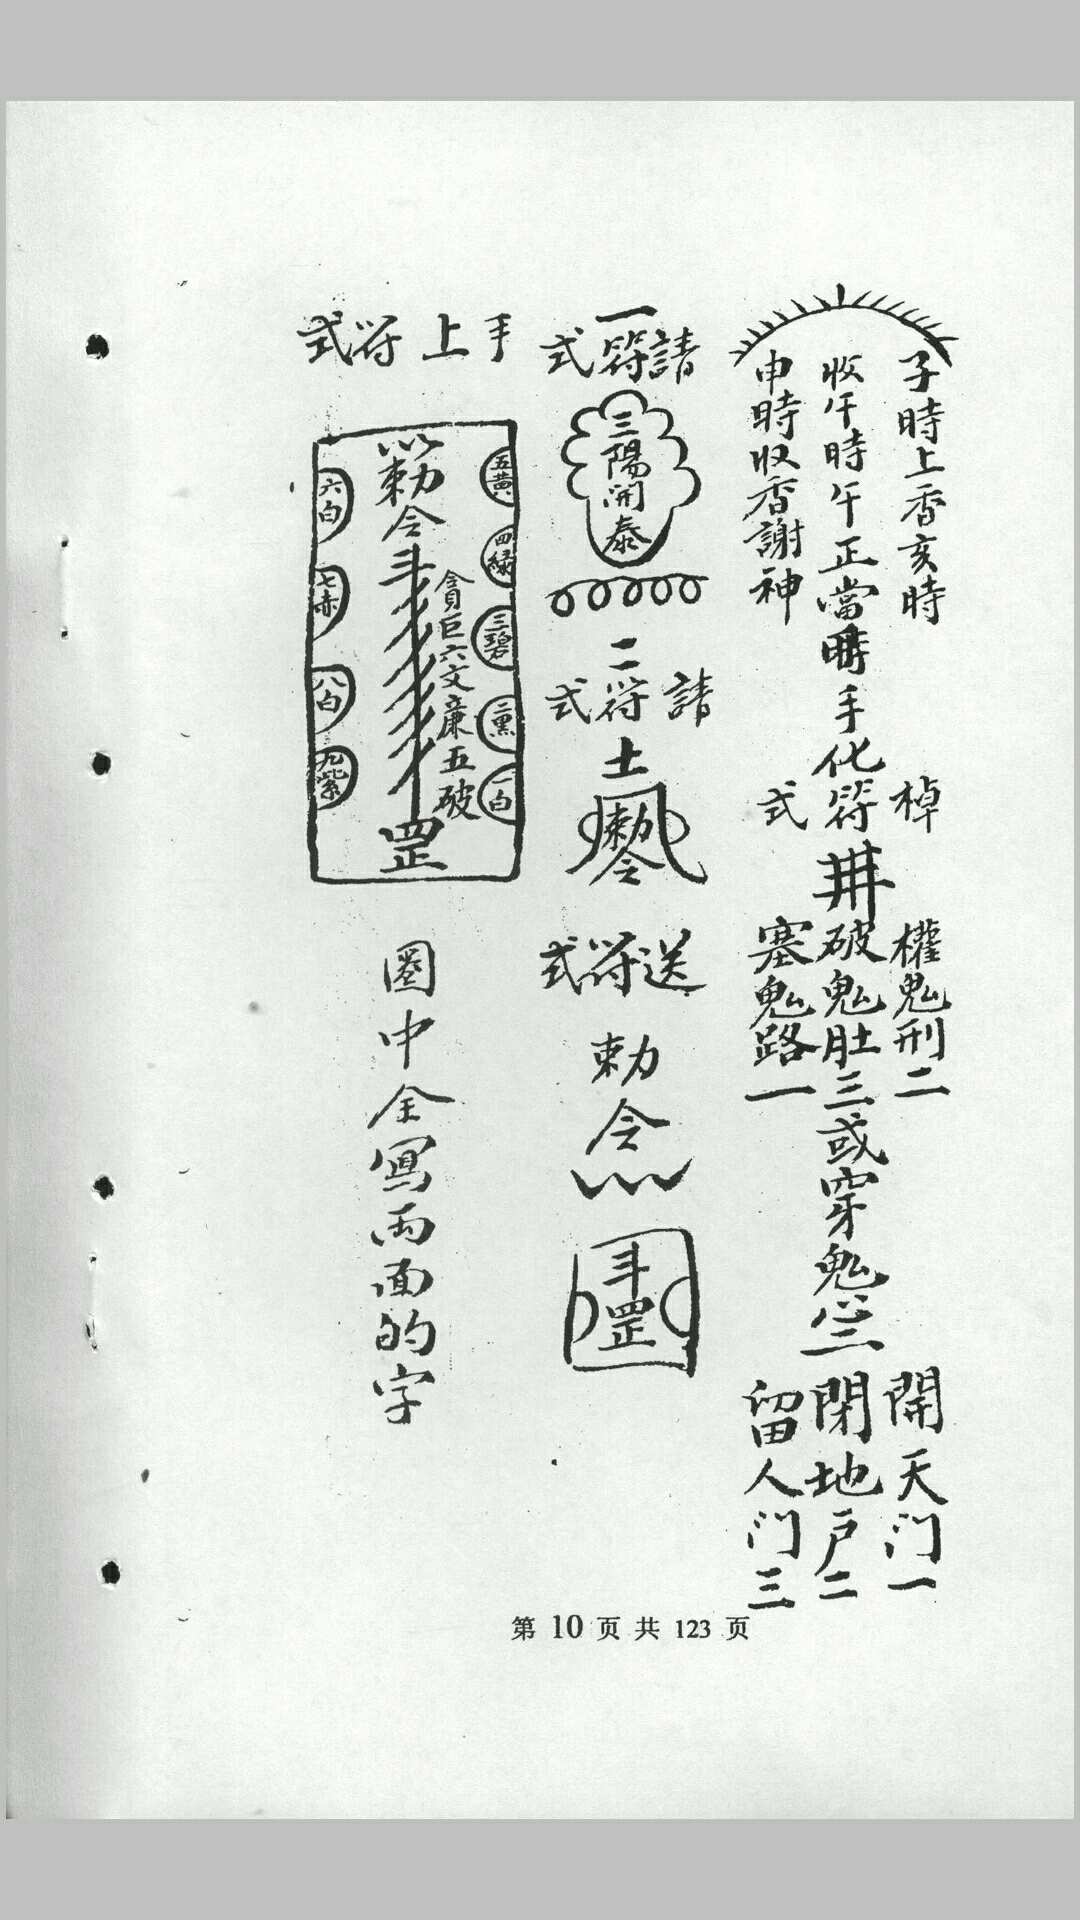 子時上香亥時
收午時午正當時手化符
申時收香謝神
棹
式
權鬼刑二
破鬼肚三或穿鬼心三
塞鬼路一
開天门一
閉地户二
留人门三
一
請符式
三陽開泰
二
請符式
土
勅令
送符式
勅令
斗罡
手上符式
勅令斗
罡
貪巨六文廉五破
五黄
四緑
三碧
二黑
一白
六白
七赤
八白
九紫
圈中全寫两面的字
第 10 页 共 123 页